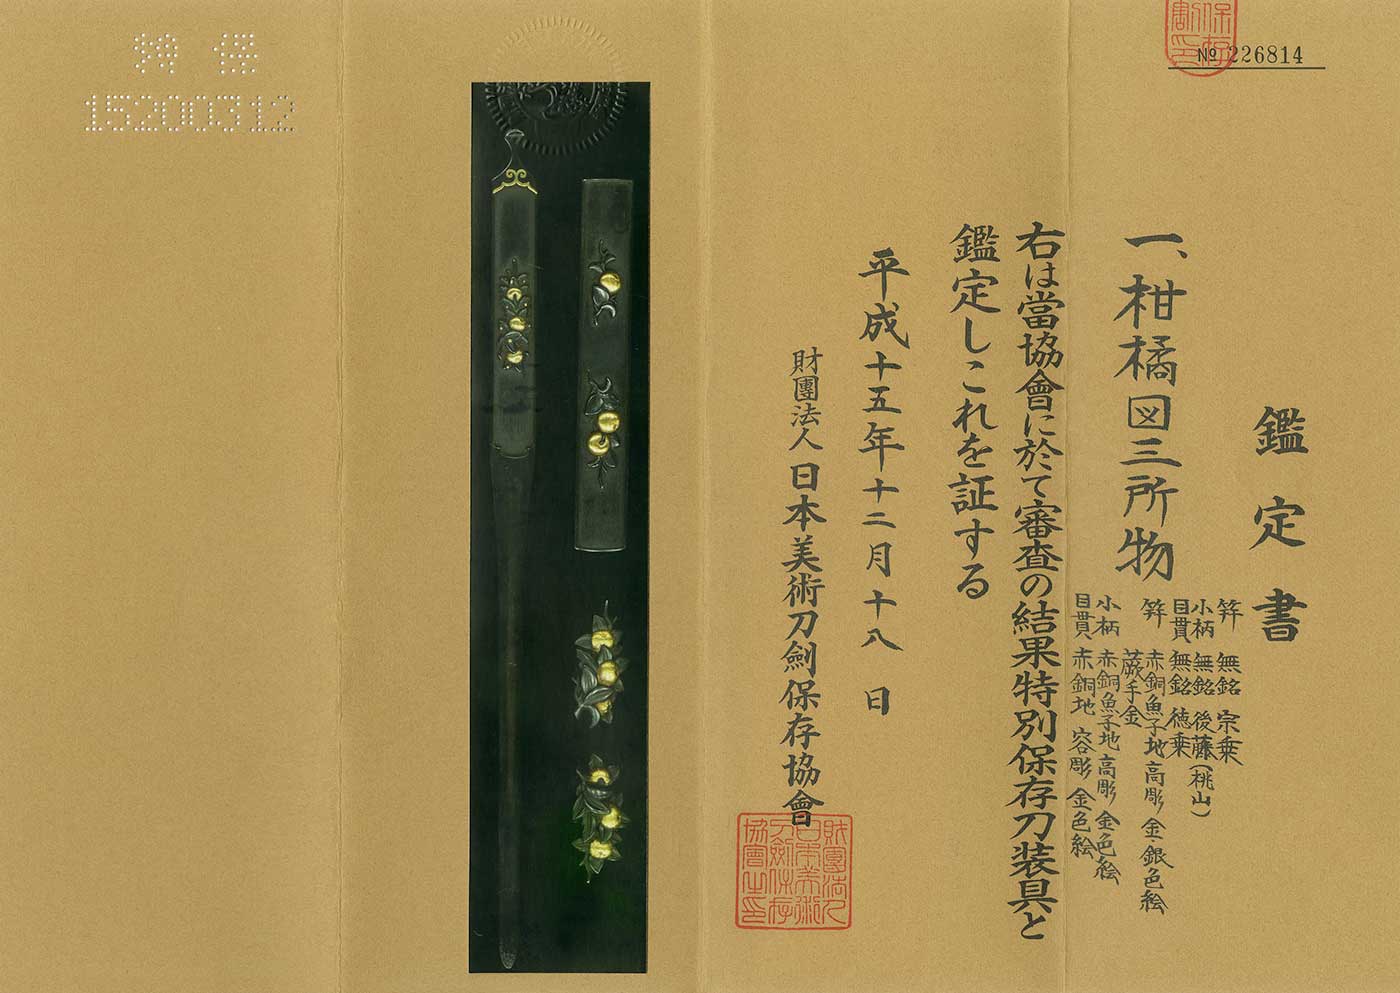 保存
割印
№ 226814
鑑定書
一、柑橘図三所物
笄 無銘 宗乗
小柄 無銘 後藤(桃山)
目貫 無銘 徳乗
笄 赤銅魚子地高彫 金・銀色絵
蕨手金
小柄 赤銅魚子地高彫 金色絵
目貫 赤銅地 容彫 金色絵
右は當協會に於て審査の結果特別保存刀装具と
鑑定しこれを証する
平成十五年十二月十八日
財團法人日本美術刀劍保存協會
財團法人
日本美術
刀劍保存
協會之印
特保
15200312